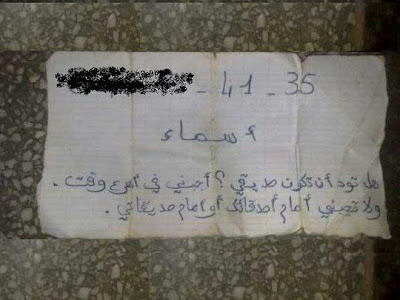 - 41 - 35
أسماء
هل تود أن تكون صديقي ؟ أجبني في أسرع وقت .
ولا تجبني أمام أصدقائك أو أمام صديقاتي .